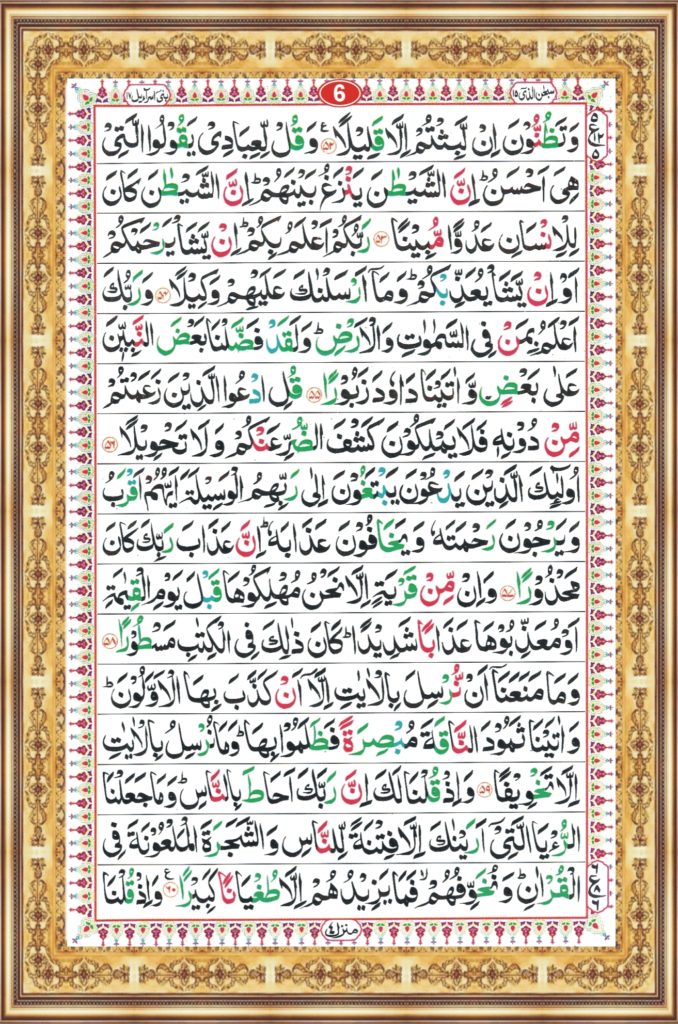 سبحٰن الذی ۱۵
6
بنی اسرآءیل ۱۷
وَتَظُنُّوْنَ اِنْ لَّبِثْتُمْ اِلَّا قَلِيْلًا ۵۲ وَقُلْ لِّعِبَادِیْ يَقُوْلُوا الَّتِیْ
هِیَ اَحْسَنُ ؕ اِنَّ الشَّيْطٰنَ يَنْزَغُ بَيْنَهُمْ ؕ اِنَّ الشَّيْطٰنَ كَانَ
لِلْاِنْسَانِ عَدُوًّا مُّبِيْنًا ۵۳ رَبُّكُمْ اَعْلَمُ بِكُمْ ؕ اِنْ يَّشَاْ يَرْحَمْكُمْ
اَوْ اِنْ يَّشَاْ يُعَذِّبْكُمْ ؕ وَمَاۤ اَرْسَلْنٰكَ عَلَيْهِمْ وَكِيْلًا ۵۴ وَرَبُّكَ
اَعْلَمُ بِمَنْ فِی السَّمٰوٰتِ وَالْاَرْضِ ؕ وَلَقَدْ فَضَّلْنَا بَعْضَ النَّبِيّٖنَ
عَلٰی بَعْضٍ وَّ اٰتَيْنَا دَاوٗدَ زَبُوْرًا ۵۵ قُلِ ادْعُوا الَّذِيْنَ زَعَمْتُمْ
مِّنْ دُوْنِهٖ فَلَا يَمْلِكُوْنَ كَشْفَ الضُّرِّ عَنْكُمْ وَلَا تَحْوِيْلًا ۵۶
اُولٰٓئِكَ الَّذِيْنَ يَدْعُوْنَ يَبْتَغُوْنَ اِلٰی رَبِّهِمُ الْوَسِيْلَةَ اَيُّهُمْ اَقْرَبُ
وَيَرْجُوْنَ رَحْمَتَهٗ وَيَخَافُوْنَ عَذَابَهٗ ؕ اِنَّ عَذَابَ رَبِّكَ كَانَ
مَحْذُوْرًا ۵۷ وَاِنْ مِّنْ قَرْيَةٍ اِلَّا نَحْنُ مُهْلِكُوْهَا قَبْلَ يَوْمِ الْقِيٰمَةِ
اَوْ مُعَذِّبُوْهَا عَذَابًا شَدِيْدًا ؕ كَانَ ذٰلِكَ فِی الْكِتٰبِ مَسْطُوْرًا ۵۸
وَمَا مَنَعَنَاۤ اَنْ نُّرْسِلَ بِالْاٰيٰتِ اِلَّاۤ اَنْ كَذَّبَ بِهَا الْاَوَّلُوْنَ ؕ
وَاٰتَيْنَا ثَمُوْدَ النَّاقَةَ مُبْصِرَةً فَظَلَمُوْا بِهَا ؕ وَمَا نُرْسِلُ بِالْاٰيٰتِ
اِلَّا تَخْوِيْفًا ۵۹ وَاِذْ قُلْنَا لَكَ اِنَّ رَبَّكَ اَحَاطَ بِالنَّاسِ ؕ وَمَا جَعَلْنَا
الرُّءْيَا الَّتِیْۤ اَرَيْنٰكَ اِلَّا فِتْنَةً لِّلنَّاسِ وَالشَّجَرَةَ الْمَلْعُوْنَةَ فِی
الْقُرْاٰنِ ؕ وَنُخَوِّفُهُمْ ۙ فَمَا يَزِيْدُهُمْ اِلَّا طُغْيَانًا كَبِيْرًا ۶۰ وَاِذْ قُلْنَا
منزل ۴